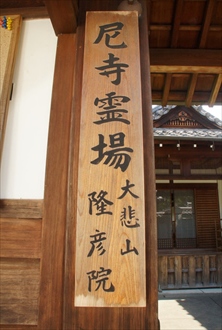 尼寺霊場
大悲山
隆彦院